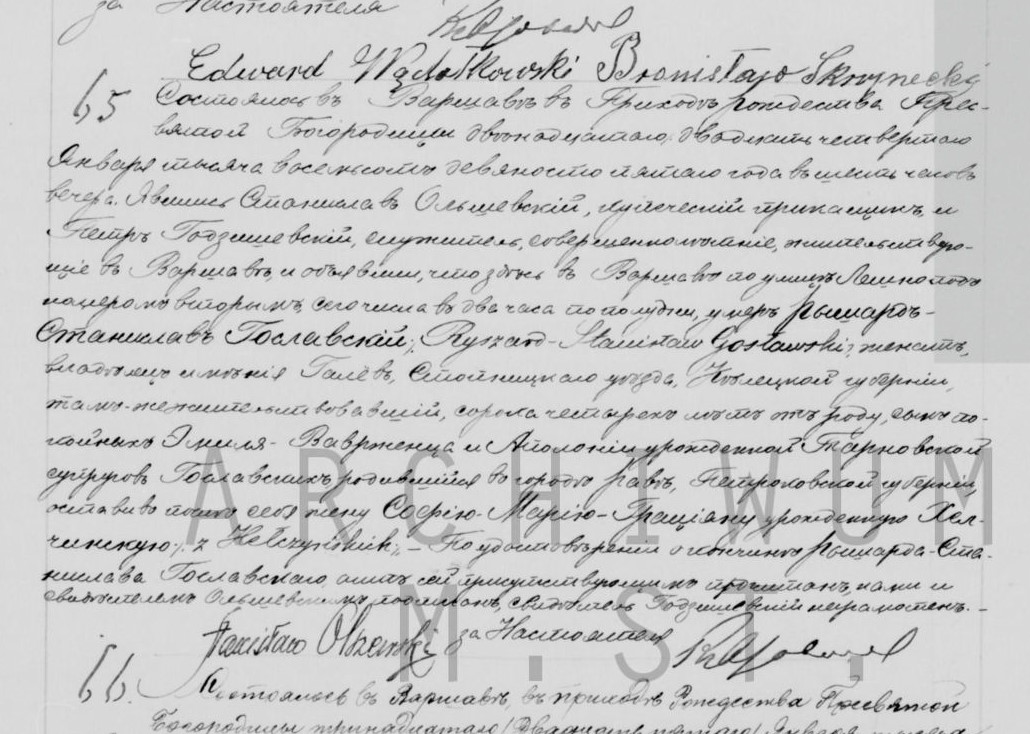 за Настоятеля
Edward Wądołkowski Bronisław Skrzynecki
65 Состоялось въ Варшавѣ въ Приходѣ рождества Прес-
вятой Богородицы двѣнадцатаго /: двадцать четвертаго
Января тысяча восемьсотъ девяносто пятаго года въ шесть часовъ
вечера. Явились Станиславъ Ольшевскій, купеческій прикащикъ, и
Петръ Годзишевскій, служитель, совершеннолѣтніе, жительствую-
щіе въ Варшавѣ, и объявили, что здѣсь въ Варшавѣ по улицѣ Лешно подъ
номеромъ вторымъ, сего числа въ два часа по полудни, умеръ Рышардъ-
Станиславъ Гославскій /: Ryszard-Stanisław Gosławski :/ женатъ,
владѣлецъ имѣнія Галёвъ, Стопницкаго уѣзда, Кѣлецкой губерніи,
тамъ-же жительствовавшій, сорока четырехъ лѣтъ отъ роду, сынъ по-
койныхъ Эмиля-Вавржинца и Аполоніи урожденной Тарновской
супруговъ Гославскихъ, родившійся въ городѣ Равѣ, Петроковской губерніи,
оставивъ послѣ себя жену Софію-Марію-Граціяну урожденную Хел-
чинскую /: z Helczyńskich :/ - По удостовѣреніи о кончинѣ Рышарда-Ста-
нислава Гославскаго, актъ сей присутствующимъ прочитанъ, нами и
свидѣтелемъ Ольшевскимъ подписанъ, свидѣтель Годзишевскій неграмотенъ. -
Stanisław Olszewski за Настоятеля
66. Состоялось въ Варшавѣ, въ приходѣ Рождества Пресвятой
Богородицы тринадцатаго / двадцать пятаго / Января тысяча
ARCHIWUM
M.ST.